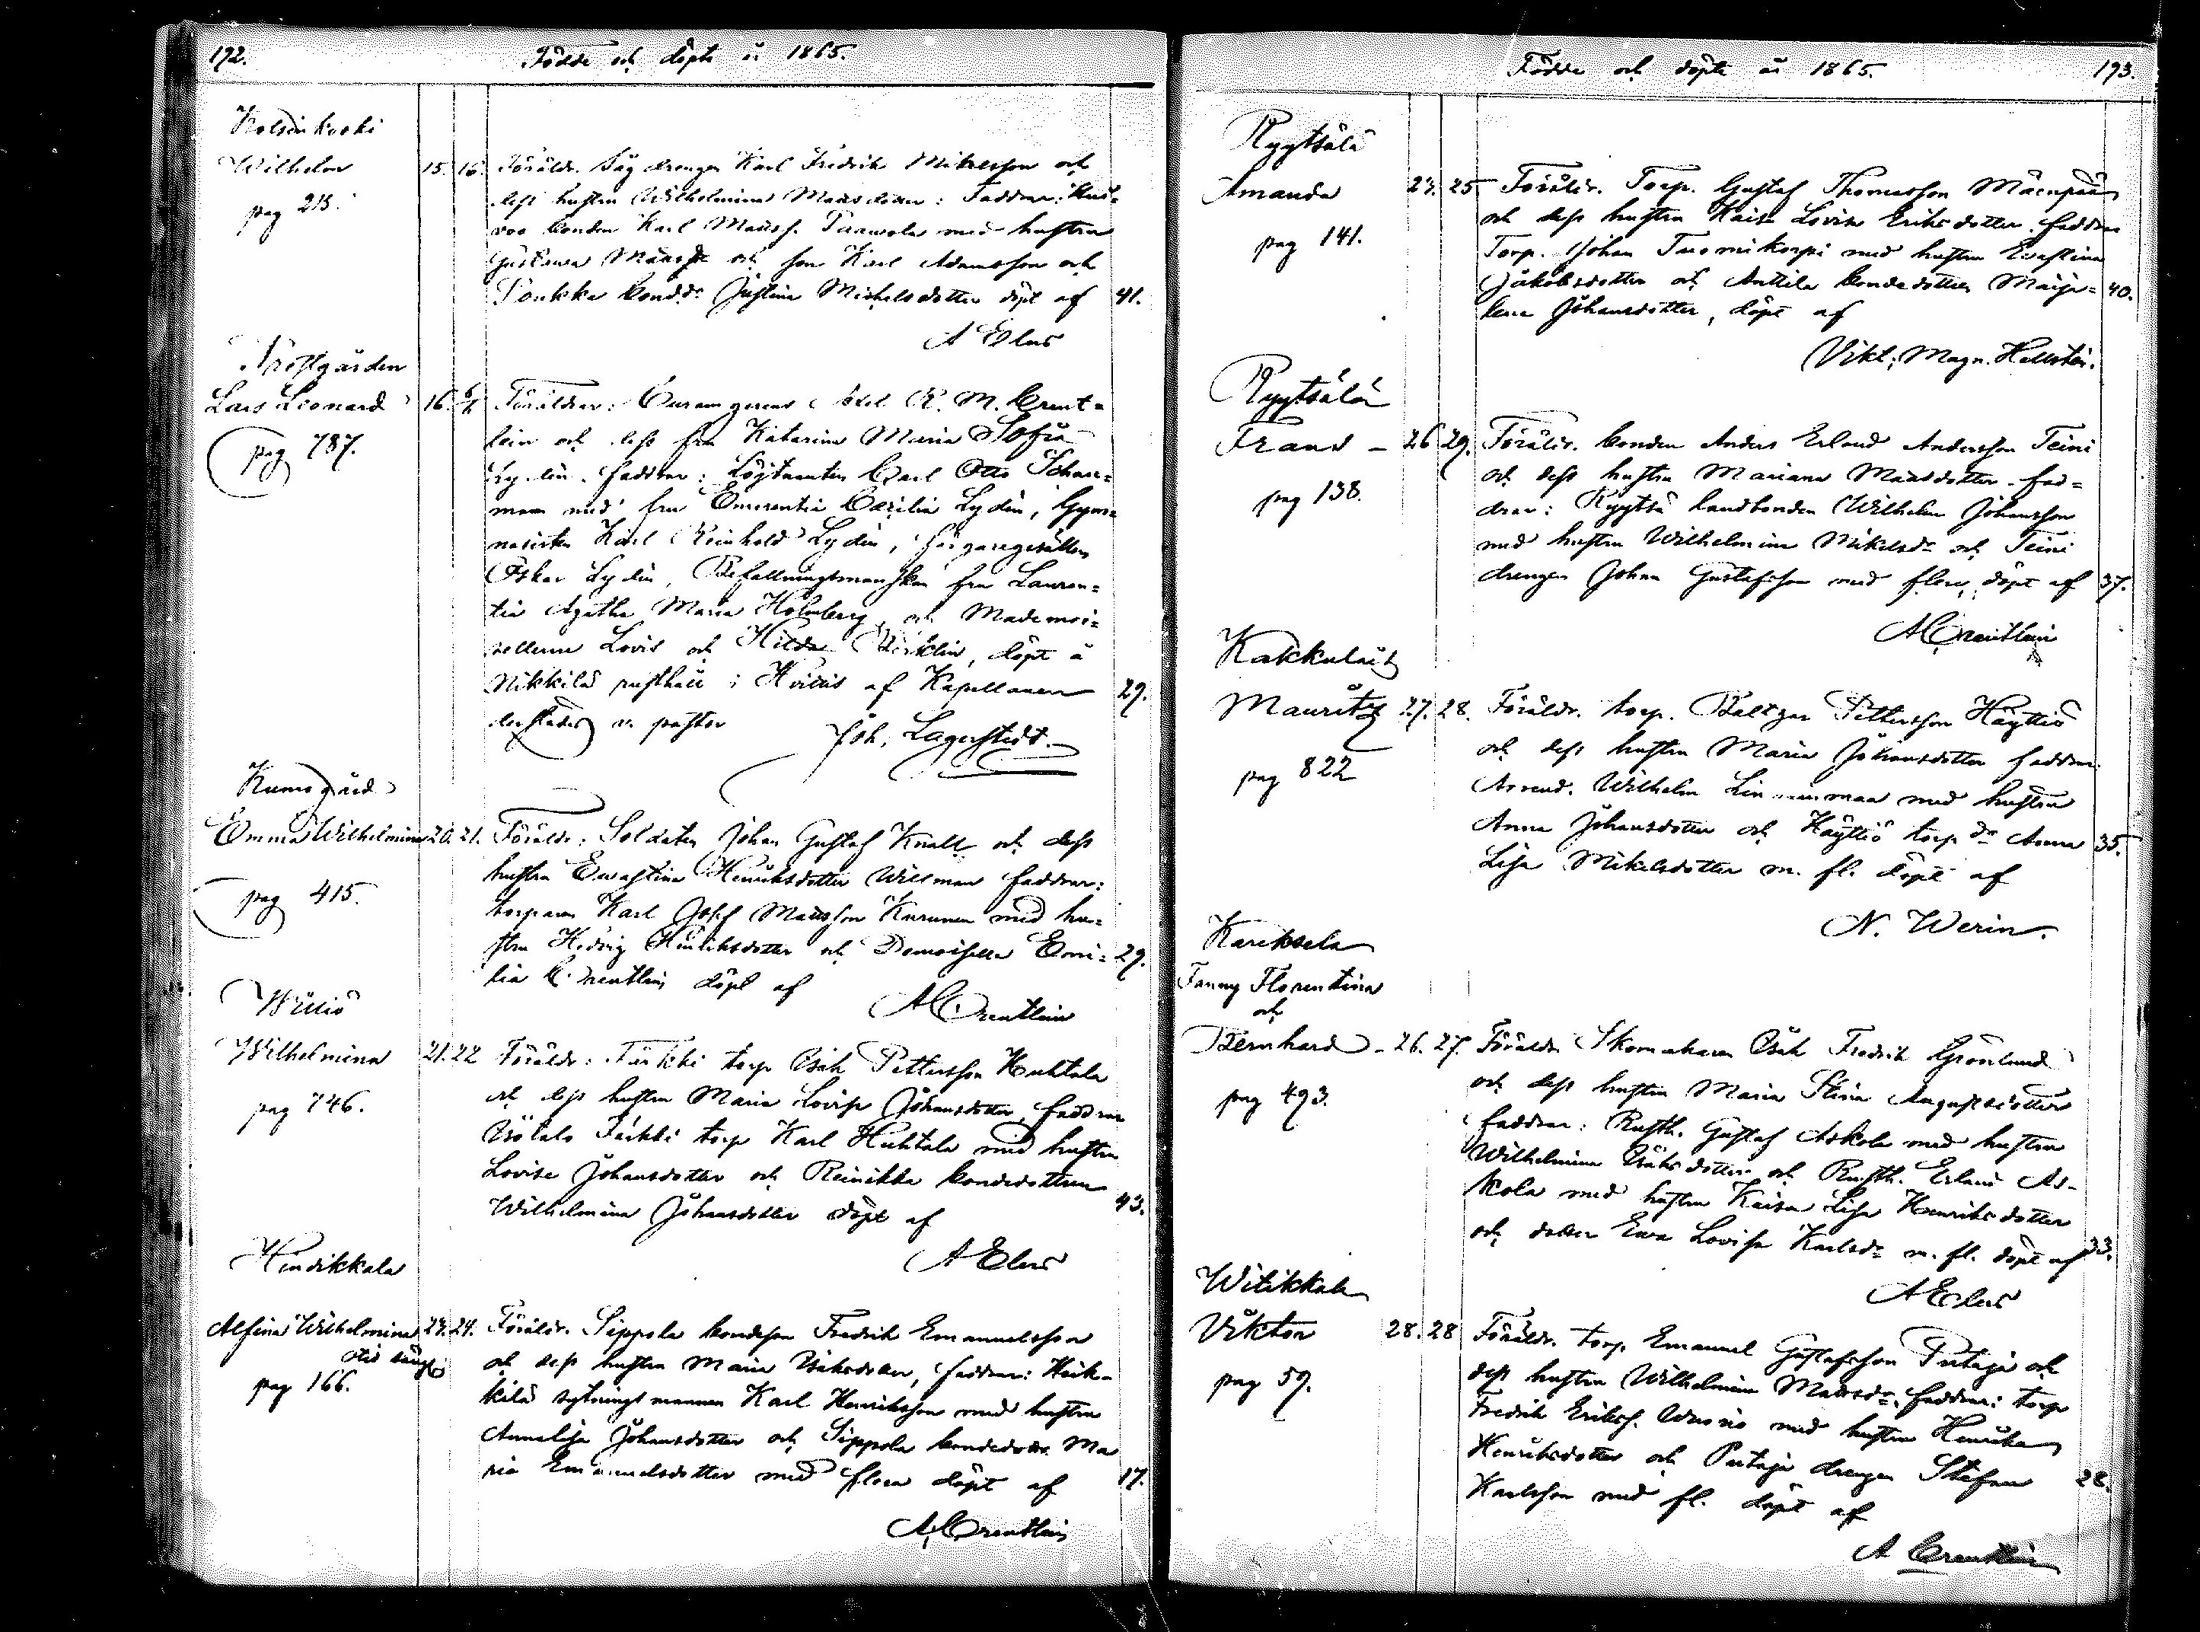 192.
Födde och döpte år 1865.
Kolsinkoski
Wilhelm 15. 16. Föräldr. Säg drengen Karl Fredrik Mikelsson och
dess hustru Wilhelmina Matsdotter: Faddrar:
pag 213.
bonden Karl Matss. med hustru
Gustava och son Karl Adamsson och
bond.dr Justina Michelsdotter döpt af 41.
A Elers
Prostgården
Lars Leonard 16. Föräldrar: A. M. Crent-
lein och dess fru Katarina Maria Sofia
pag 787.
Lydén. faddrar: Löjtnanten Carl Otto
man med fru Emerentia Cecilia Lydén, Gym-
nasisten Karl Reinhold Lydén, färgaregesällen
Oskar Lydén, Befallningsmanskan fru Lauren-
tia Agatha Maria Holmberg, och Mademoi-
sellerna Lovis och Hilda döpt å
Nikkilä rusthåll i Hvittis af Kapellanen 29.
derstädes v. pastor Joh. Lagerstedt.
Kumogård
Emma Wilhelmina 20. 21. Föräldr: Soldaten Johan Gustaf Knall och dess
hustru Evastina Henriksdotter Willman faddrar:
pag 415.
torparen Karl Josef Matsson Kurunen med hu-
stru Hedvig Henriksdotter och Demoiselle Emi- 29.
lia Crentlein döpt af
A Crentlein
Willio
Wilhelmina 21. 22 Föräldr: torp Isak Pettersson Huhtala
och dess hustru Maria Lovisa Johansdotter, faddrar
pag 746.
torp Karl Huhtala med hustru
Lovisa Johansdotter och Reinikka bondedottren
Wilhelmina Johansdotter döpt af 43.
A Elers
Hindikkala
Alfina Wilhelmina 23. 24. Föräldr. Sippola bondeson Fredrik Emanuelsson
och dess hustru Maria Isaksdotter, faddrar: Heik-
pag 166.
kilä sytningsmannen Karl Henriksson med hustru
Annalisa Johansdotter och Sippola bondedottr. Ma
ria Emanuelsdotter med flera döpt af 17.
A. Crentlein
Födde och döpte år 1865.
193.
Ryytsälä
Amanda 23. 25 Föräldr. Torp. Gustaf Thomasson Mäenpää
och dess hustru Kaisa Lovisa Eriksdotter. faddrar
pag 141.
Torp. Johan Tuomikorpi med hustru Evastina
Jakobsdotter och Anttila bondedotter Maija- 40.
lena Johansdotter, döpt af
Vikt: Magn. Hellstén.
Ryytsälä
Frans - 26 29. Föräldr. bonden Anders Erland Andersson Teini
och dess hustru Mariana Matsdotter. fad-
pag 138.
drar: Ryytsä landbonden Wilhelm Johansson
med hustru Wilhelmina Mikelsdr och Teini
drengen Johan Gustafsson med flere, döpt af 37.
A Crentlein
Kakkulais
Mauritz 27. 28. Föräldr. torp. Baltzar Pettersson Häyttiö
och dess hustru Maria Johansdotter faddrar:
pag 822
Arrend. Wilhelm med hustru
Anna Johansdotter och Häyttiö torp dr Anna 35.
Lisa Mikelsdotter m. fl. döpt af
N. Werin.
Kareksela
Fanny Florentina
och
Bernhard - 26. 27. Föräldr Skomakaren Isak Fredrik Grönlund
och dess hustru Maria Stina Augustsdotter
pag 493.
faddrar: Rusth. Gustaf Askola med hustru
Wilhelmina Isaksdotter och Rusth. Erland As-
kola med hustru Kaisa Lisa Henriksdotter
och dotter Eva Lovisa Karlsdr m. fl. döpt af 33.
A Elers
Witikkala
Viktor 28. 28 Föräldr. torp Emanuel Gustafsson Putaja och
dess hustru Wilhelmina Matsdr. faddrar: torp
pag 59.
Fredrik Erikss. Wuorio med hustru Henrika
Henriksdotter och Putaja drengen Stefan 28.
Karlsson med fl. döpt af
A Crentlein